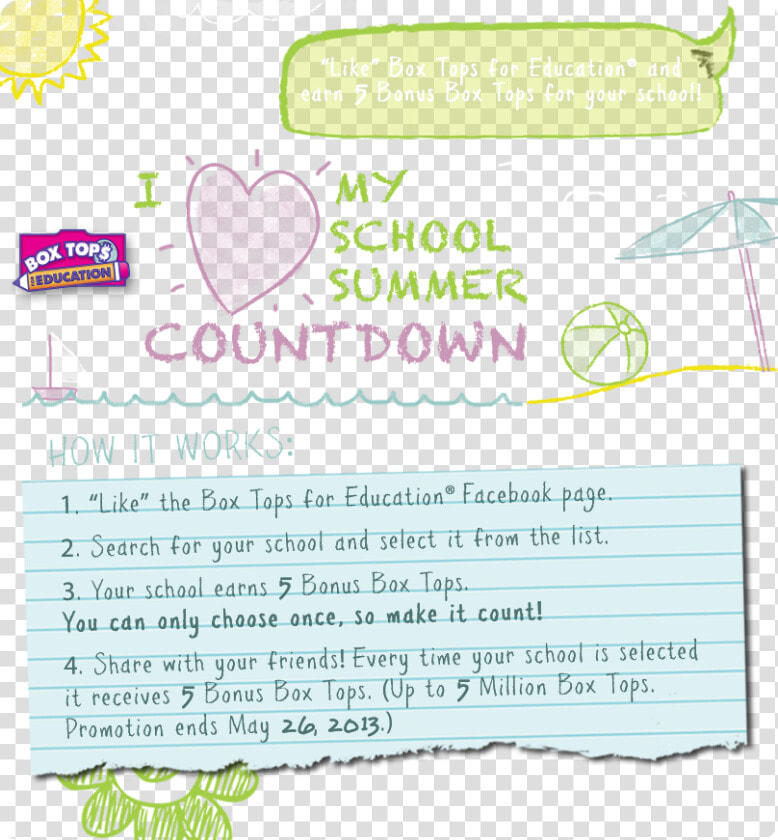 “Like” Box Tops for Education® and
earn 5 Bonus Box Tops for your school!
I MY
SCHOOL
SUMMER
COUNTDOWN
BOX TOPS
FOR EDUCATION
HOW IT WORKS:
1. “Like” the Box Tops for Education® Facebook page.
2. Search for your school and select it from the list.
3. Your school earns 5 Bonus Box Tops.
You can only choose once, so make it count!
4. Share with your friends! Every time your school is selected
it receives 5 Bonus Box Tops. (Up to 5 Million Box Tops.
Promotion ends May 26, 2013.)